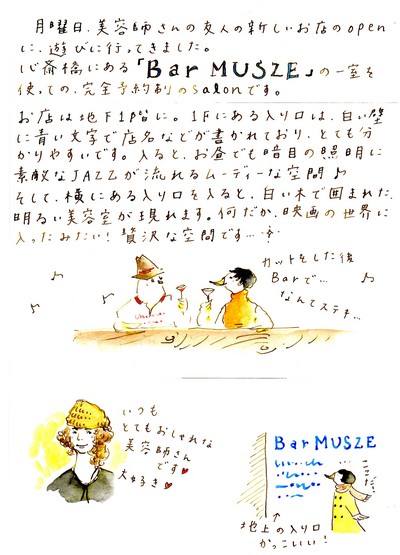 月曜日、美容師さんの友人の新しいお店のopen
に、遊びに行ってきました。
心斎橋にある「Bar MUSZE」の一室を
使っての、完全予約制のsalonです。
お店は地下1階に。1Fにある入り口は、白い壁
に青い文字で店名などが書かれており、とても分
かりやすいです。入ると、お昼でも暗目の照明に
素敵なJAZZが流れるムーディーな空間♪
そして、横にある入り口を入ると、白い木で囲まれた、
明るい美容室が現れます。何だか、映画の世界に
入ったみたい!贅沢な空間です…
カットをした後
Barで…
なんてステキ…
いつも
とてもおしゃれな
美容師さん
です♥
大好き♥
Bar MUSZE
地上の入り口
かっこいい!